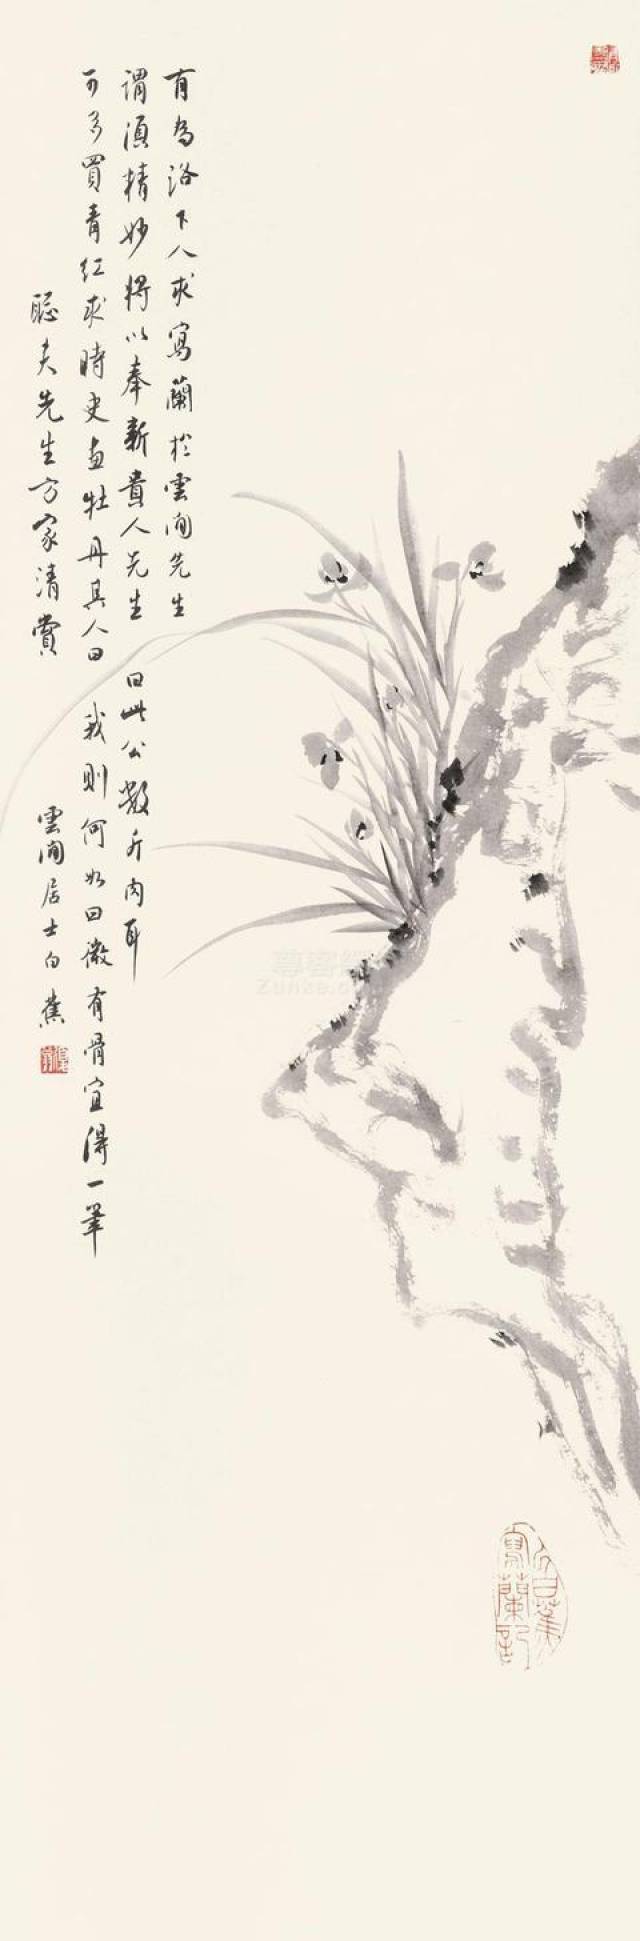 有为洛下人求寫蘭於雲間先生
謂須精妙將以奉新貴人先生曰此公數斤肉耳
可多買青紅求時史畫牡丹其人曰我則何如曰微有骨宜得一筆
聪夫先生方家清賞
雲間居士白蕉
白蕉
寫蘭記
尊客
Zunke.c